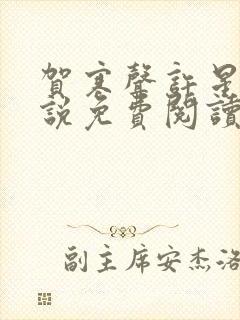 賀寒聲許星
說免費閱讀
副主席安杰洛